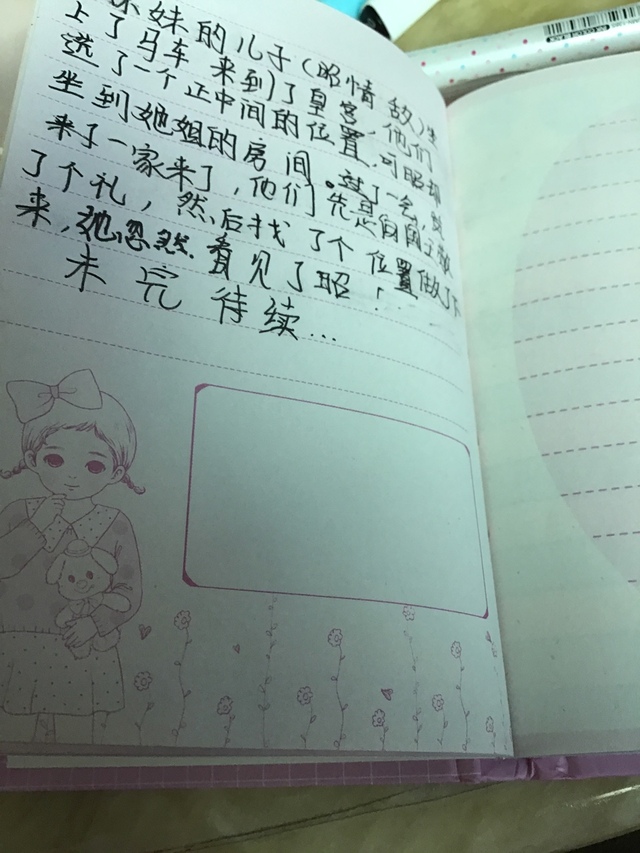 妹的儿子(昭情敌)坐
上了马车来到了皇宫,他们
选了一个正中间的位置,可昭却
坐到她姐的房间。过了一会,
来了一家来了,他们先是向国王敬
了个礼,然后找了个位置做了下
来,她忽然看见了昭!
未完待续...